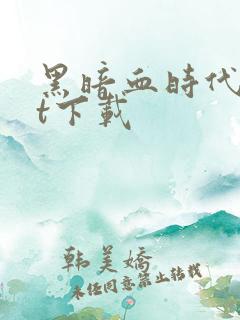 黑暗血時代
t下載
韩美嬌
未经同意禁止转载